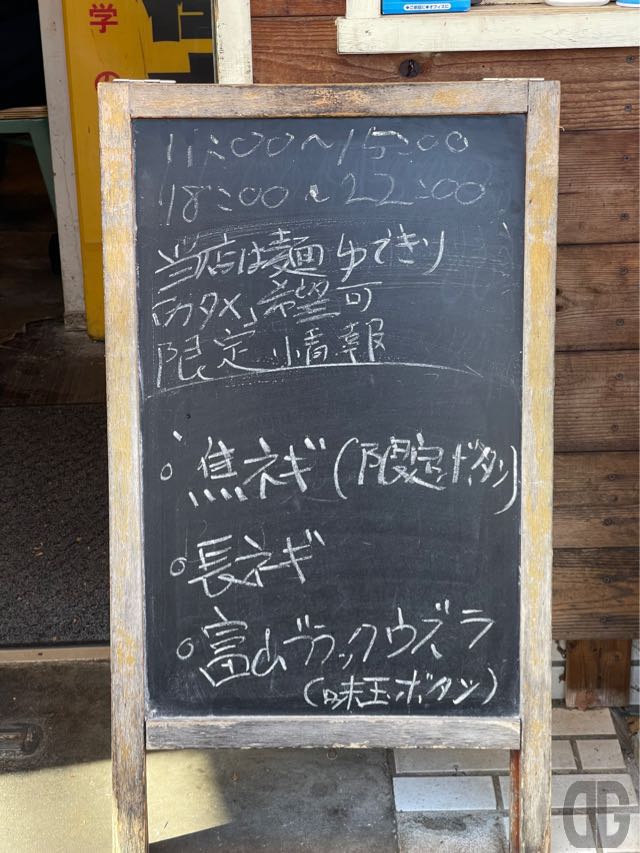 学
11:00~15:00
18:00~22:00
当店は麺ゆできり
カタメ、希望可
限定情報
焦ネギ(限定ボタン)
長ネギ
富山ブラックウズラ
(味玉ボタン)
DG